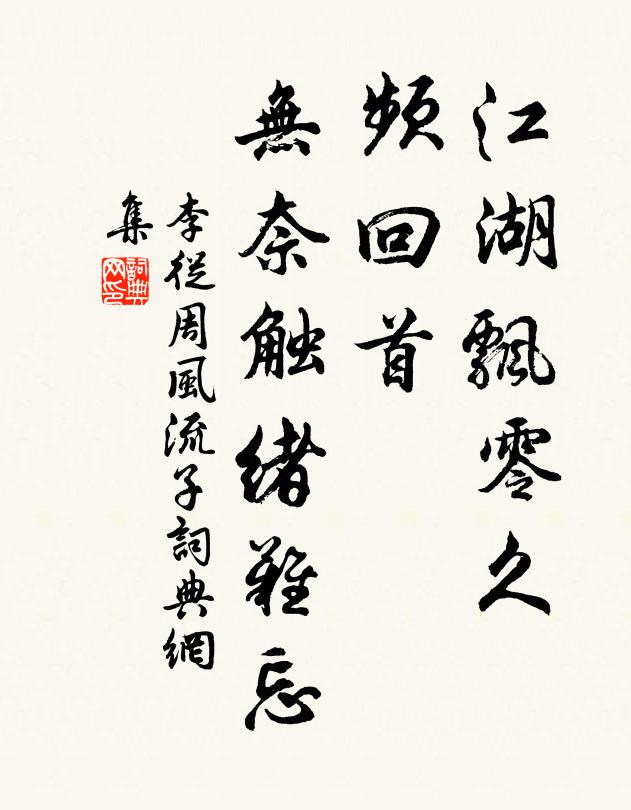 江湖飄零久
頻回首
無奈触緒難忘
李從周風流子詞典網
集
詞典
网印